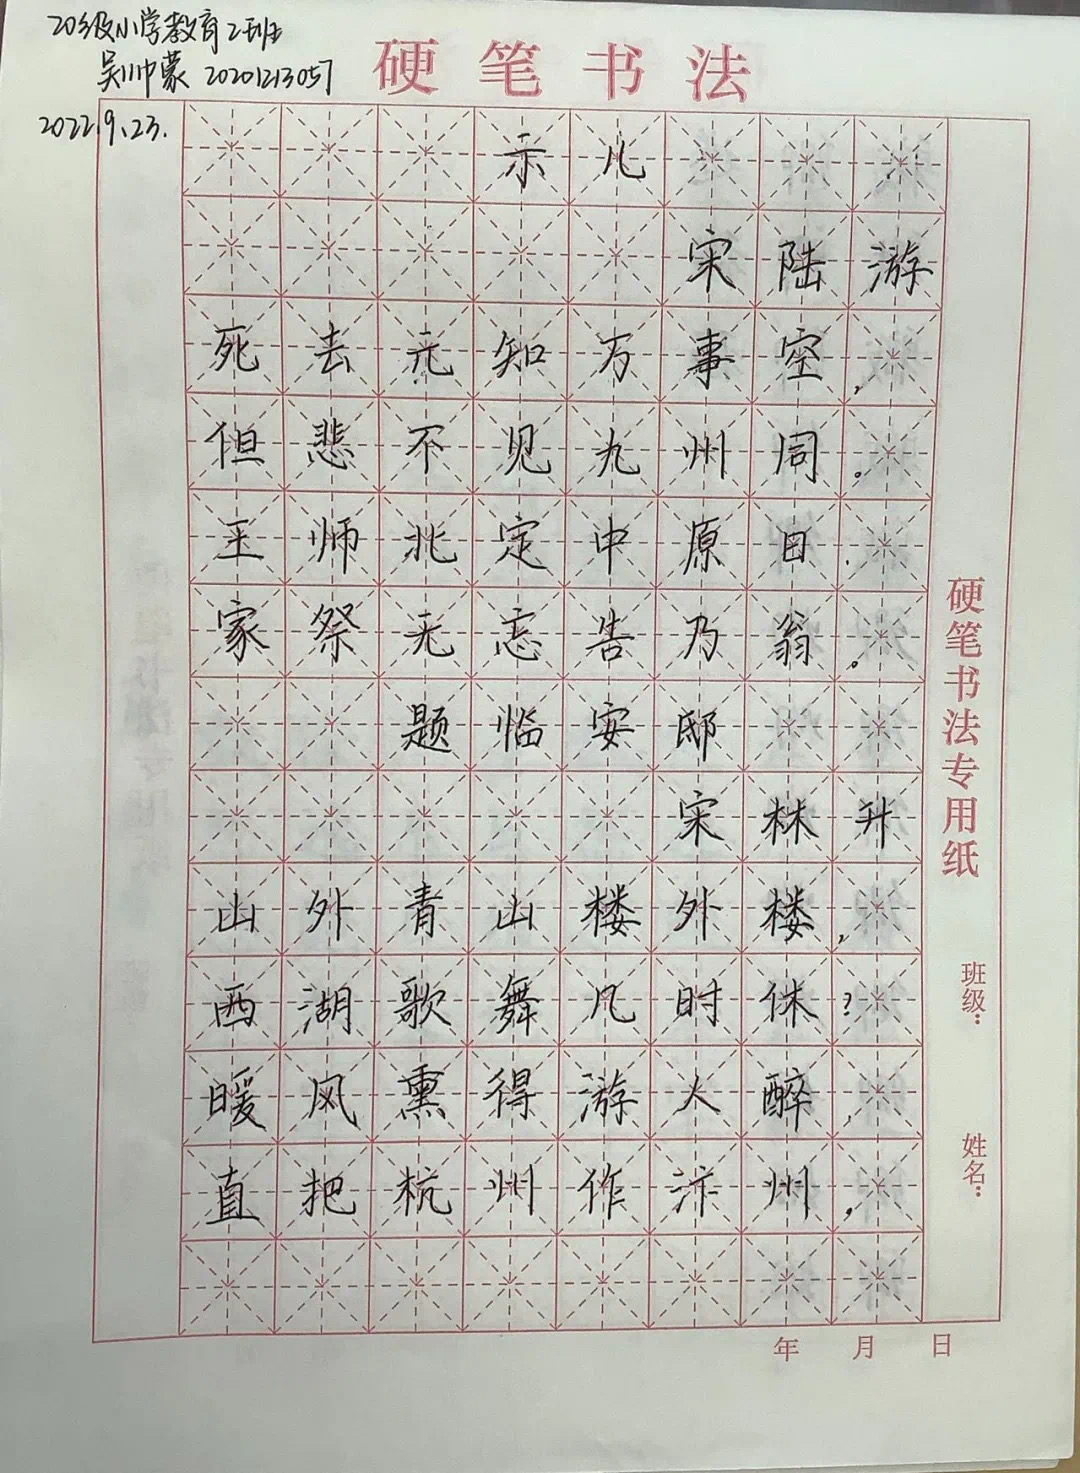 20级小学教育2班
吴帅蒙 20201213057
2022.9.23.
硬笔书法
示儿
宋陆游
死去元知万事空,
但悲不见九州同。
王师北定中原日.
家祭无忘告乃翁。
题临安邸
宋林升
山外青山楼外楼,
西湖歌舞几时休?
暖风熏得游人醉,
直把杭州作汴州。
硬笔书法专用纸
班级:
姓名:
年 月 日